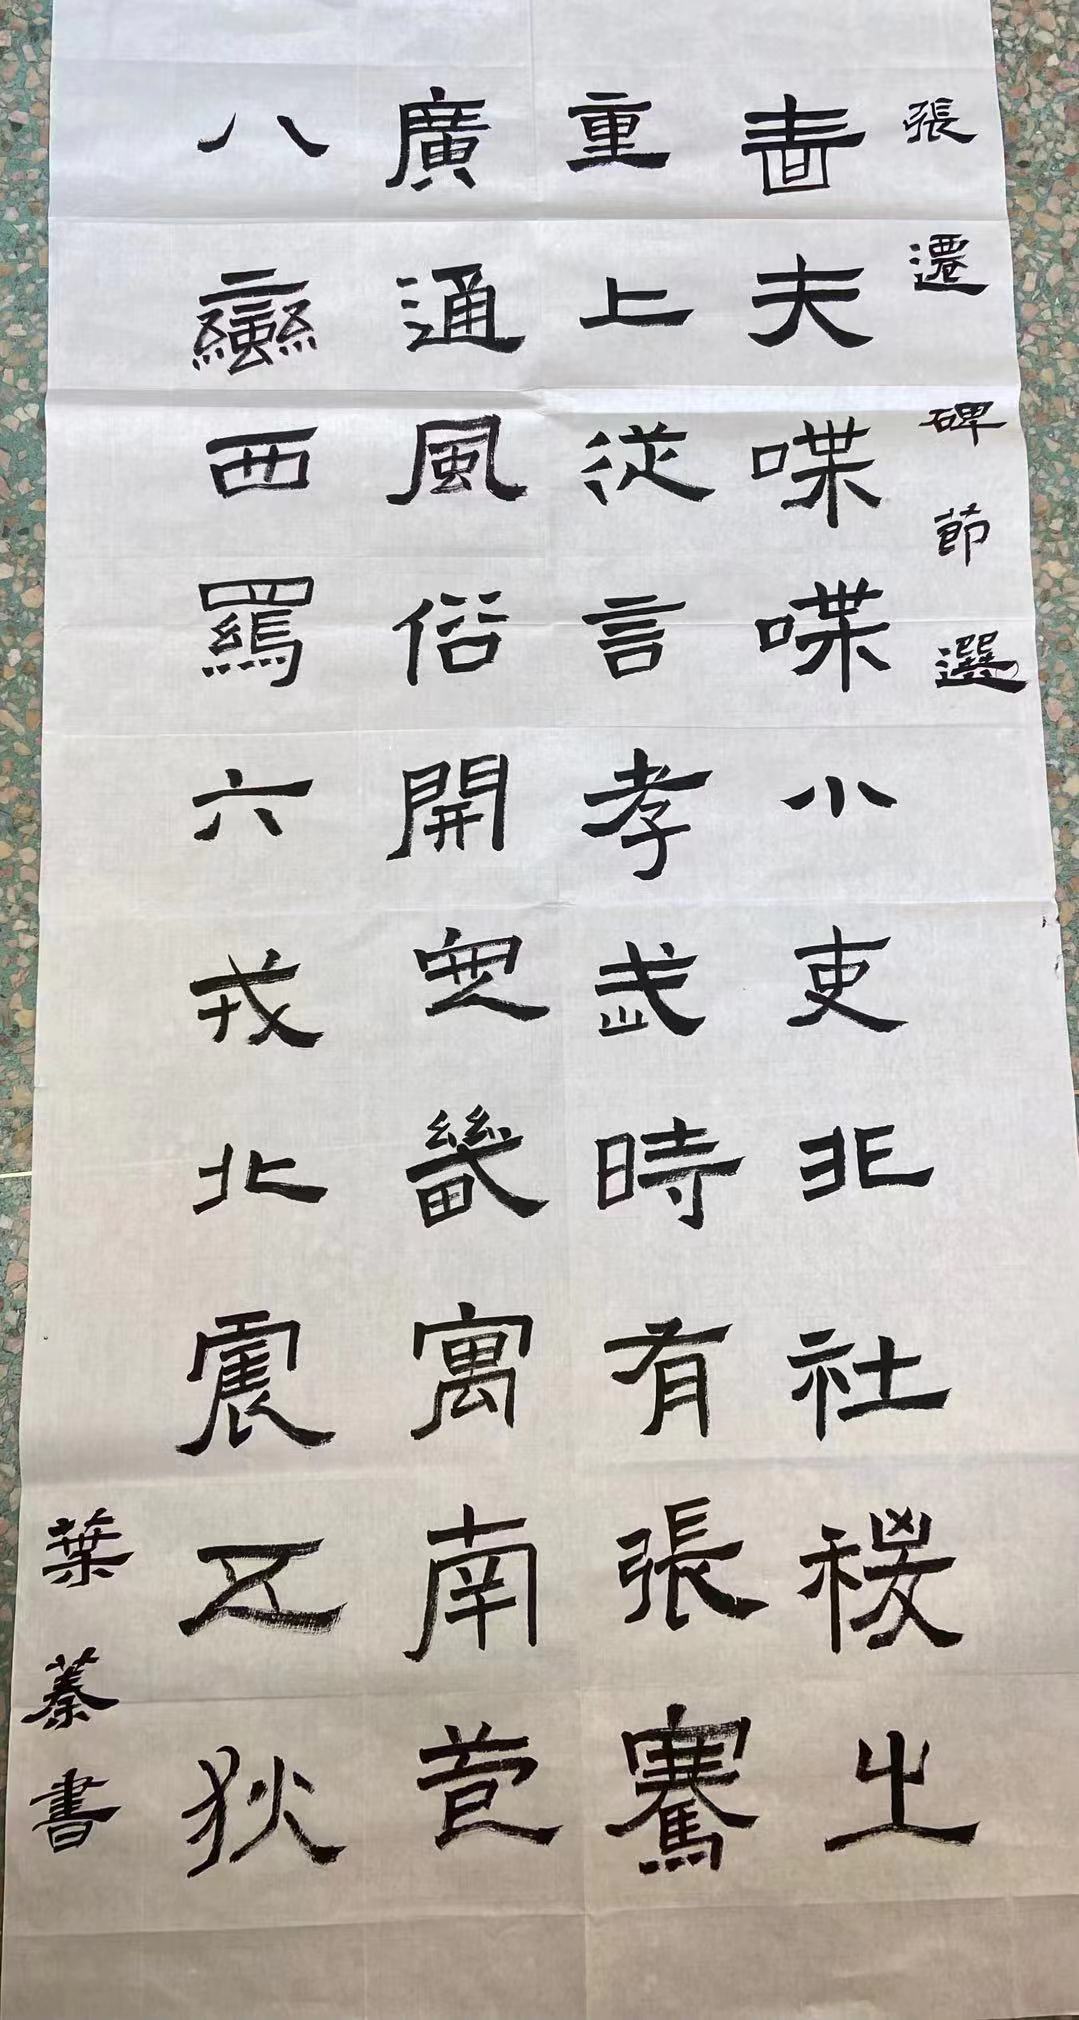 張遷碑節選
嗇夫喋喋小吏非社稷之
重上從言孝武時有張騫
廣通風俗開定畿寓南苞
八蠻西羈六戎北震五狄
葉蓁書